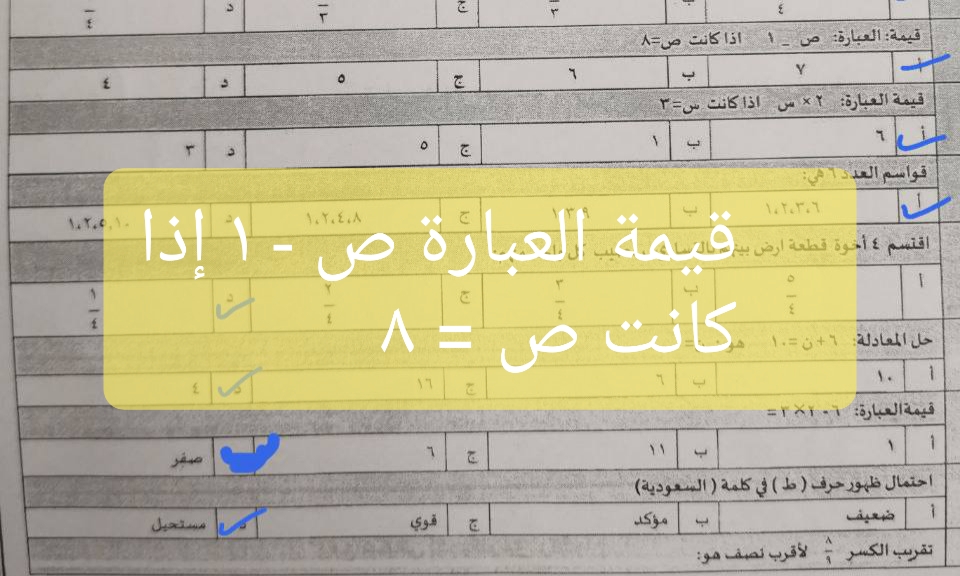 ٤ د ٣ ج ٣ ب ٤
قيمة: العبارة: ص _ ١ اذا كانت ص=٨
أ ٧ ب ٦ ج ٥ د ٤
قيمة العبارة: ٢ × س اذا كانت س=٣
أ ٦ ب ١ ج ٥ د ٣
قواسم العدد ٦ هي:
أ ١،٢،٣،٦ ب ١،٣،٩ ج ١،٢،٤،٨ د ١،٢،٥،١٠
قيمة العبارة ص - ١ إذا
كانت ص = ٨
اقتسم ٤ أخوة قطعة ارض
أ ٥/٤ ب ٣/٤ ج ٢/٤ د ١/٤
حل المعادلة: ٦+ن=١٠ هو
أ ١٠ ب ٦ ج ١٦ د ٤
قيمة العبارة: ٦-٢×٣=
أ ١ ب ١١ ج ٦ صفر
احتمال ظهور حرف (ط) في كلمة (السعودية)
أ ضعيف ب مؤكد ج قوي د مستحيل
تقريب الكسر ٨/٩ لأقرب نصف هو: